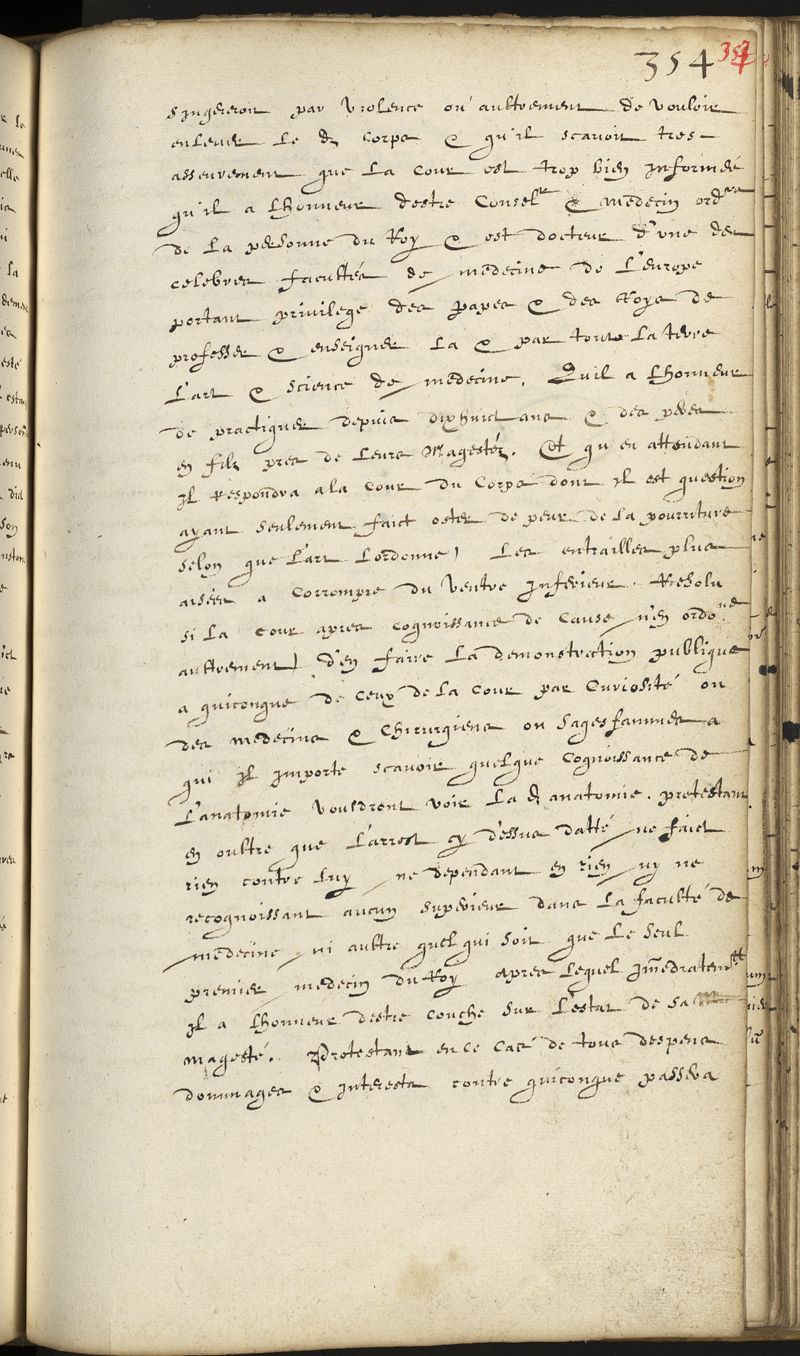 354 357
singereroit par violence ou aultrement de vouloir
enlever le d. corps & qu'il scavoit tres-
asseurement que la cour est trop bien informeé
qu'il a lhonneur destre Conselr & medecin ordre
de la personne du Roy & est docteur d'une des
celebres facultés de medecine de l'europe
portant privilege des papes & des Roys de
professer & enseigner la & par toute la terre
l'art & science de medecine. Quil a lhonneur
de practiquer depuis dixhuict ans & des peres
en filz pres de leurs Magestéz. Et qu'en attendant
il Respondra a la cour du corps dont il est question
ayant seulement faict oster de peur de la pourriture
selon que l'art l'ordonne) les entrailles plus
aisées a corrompre du ventre inferieur. Resolu
si la cour apres cognoissance de cause n'en ordone
aultrement) d'en faire la demonstration publique
a quiconque de ceux de la cour par curiosité ou
des medecins & chirurgiens ou sagesfammes a
qui il importe scavoir quelque cognoissance de
l'anatomie voudront voir la d. anatomie. protestant
en oultre que l'arrest cy dessus datté ne faict
rien contre luy ne dependant en rien ny ne
recognoissant aucun superieur dans la faculté de
medecine ni aultre quel qui soit que le seul
premier medecin du Roy apres lequel immediatemtt
il a lhonneur destre couché sur l'estat de sa
magesté. Protestant en ce cas de tous despens
dommages & interests contre quiconque passera